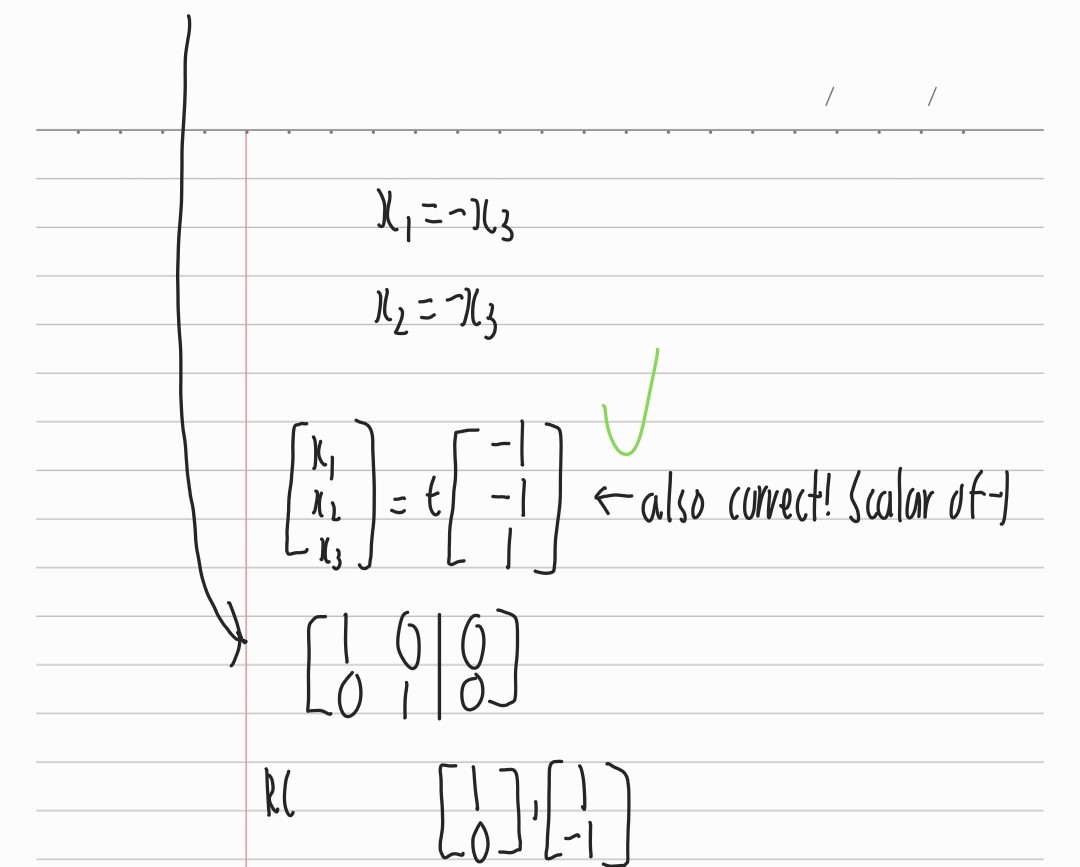 / /
x₁ = -x₃
x₂ = -x₃
[x₁ x₂ x₃] = t [-1 -1 1] ← also correct! Scalar of -1
[1 0 | 0
0 1 | 0]
[1 0] , [1 -1]